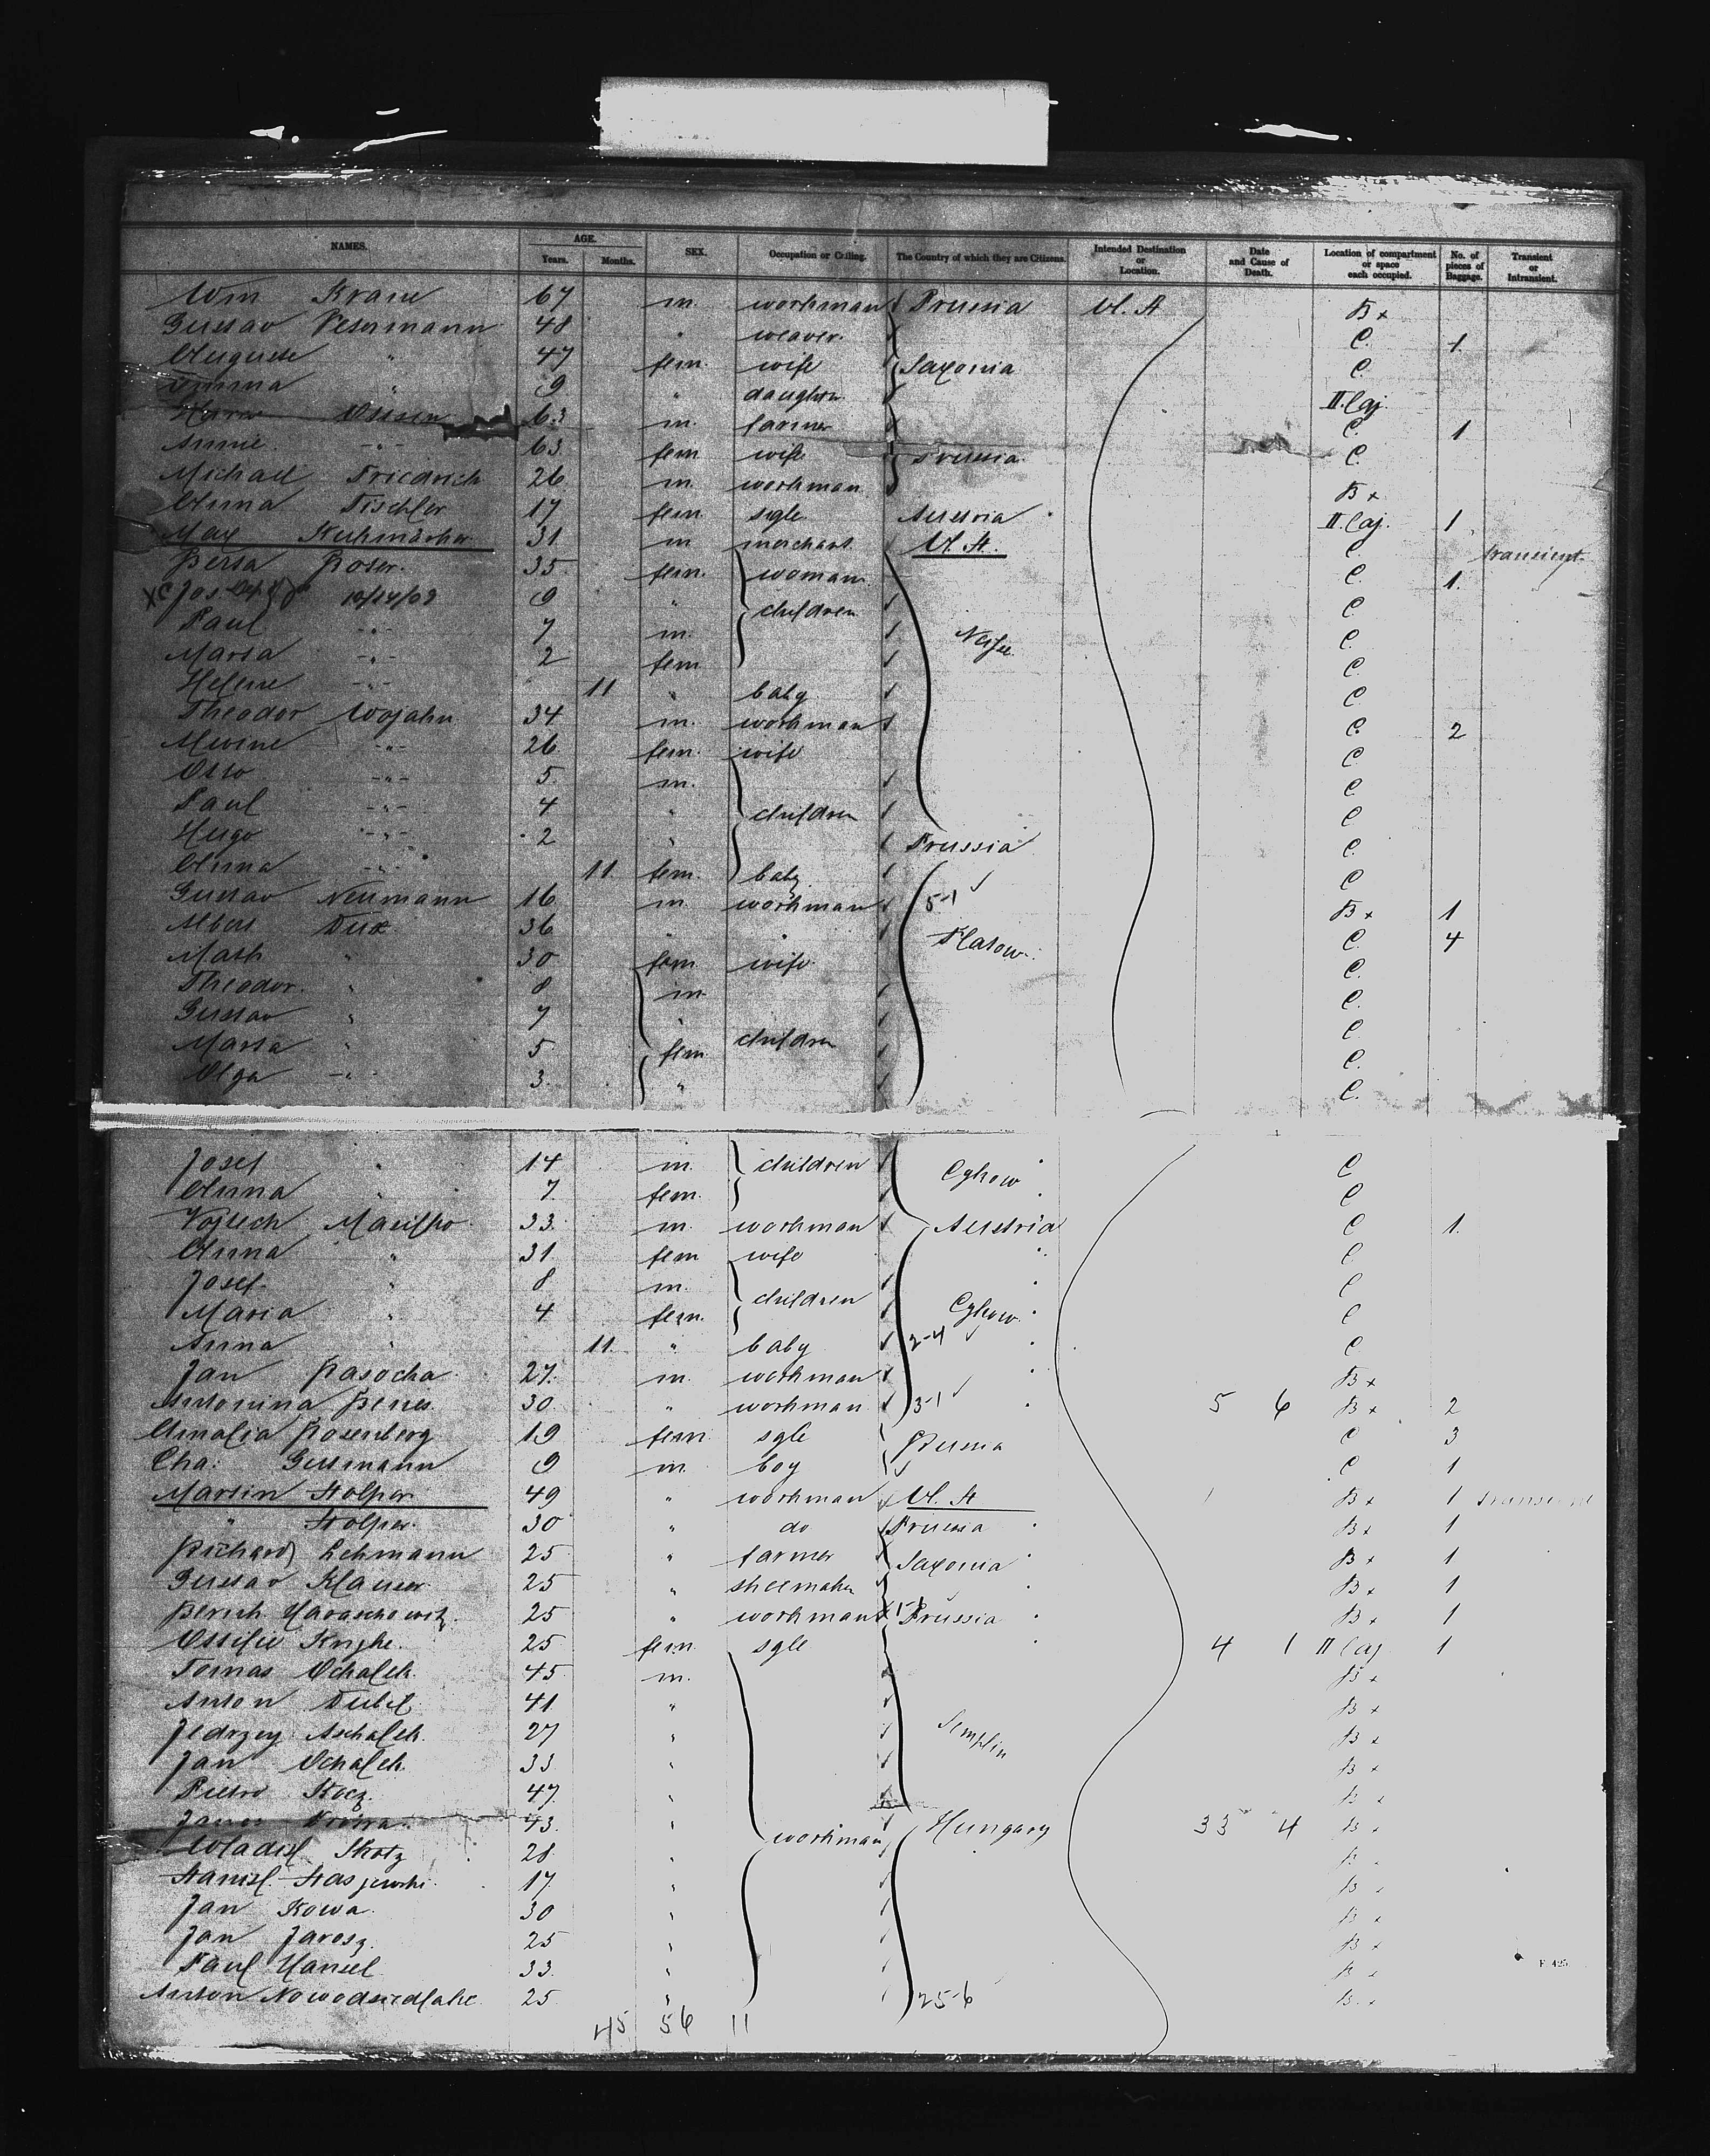 NAMES. AGE. SEX. Occupation or Calling. The Country of which they are Citizens. Intended Destination or Location. Date and Cause of Death. Location of compartment or space each occupied. No. of pieces of Baggage. Transient or Intransient.
Years. Months.
Wm Krane 67 m. workman Prussia U. St. B x
Gustav 48 " weaver C. 1.
Auguste " 47 fem. wife Saxonia C.
Emma " 9 " daughter II. Caj.
63 m. farmer C. 1
Annie -"- 63 fem. wife Prussia C.
Michael Friedrich 26 m. workman B x
Anna Tischler 17 fem. sgle Austria II. Caj. 1
Max 31 m merchant U. St. C. transient
35 fem. woman C. 1.
Jos. 10/14/03 9 " children C.
Paul -"- 7 m. C.
Marta -"- 2 fem C.
Helene -"- 11 " baby C.
Theodor Wojahn 34 m. workman C. 2
Alwine -"- 26 fem. wife C
Otto -"- 5 m. C
Paul -"- 4 " children C
Hugo -"- 2 " Prussia C.
Anna -"- 11 fem. baby C
Gustav Neumann 16 m. workman 5-1 B x 1
Albert Dux 36 " " Flatow C. 4
" 30 fem wife C.
Theodor " 8 m. C.
Gustav " 7 " C.
Marta " 5 fem children C.
Olga -"- 3. " C.
Josef " 14 m. children C
Anna " 7 fem. C
Vojtech 33 m. workman Austria C 1.
Anna " 31 fem wife C
Josef " 8 m. C
Maria " 4 fem. children C
Anna " 11 " baby 2-4 C
Jan Rasocha 27. m. workman B x
Antonina Benes 30 " workman 3-1 5 6 B x 2
Amalia Rosenberg 19 fem sgle Russia C 3
Cha: Gussmann 9 m. boy C 1
Martin Stolper 49 " workman U. St B x 1 transient
" Stolper. 30 " do Prussia B x 1
Richard Lehmann 25 " farmer Saxonia B x 1
Gustav Klauser 25 " shoemaker B x 1
25 " workman Prussia B x 1
25 fem. sgle 4 1 II Caj 1
Tomas Ochalek 45 m. B x
Anton Dubil 41 " B x
Jedrzey 27 " Semplin B x
Jan Ochalek 33 " B x
Pietro Kocz. 47. " B x
43. " workman Hungary 33 4 B x
Wladisl 28 " B x
Stanisl. 17 " B x
Jan Kowa 30 " B x
Jan Jarosz. 25 " B x
Paul Hansel 33. " B x F 425
Anton 25 " 25-6 B. x
45 56 11